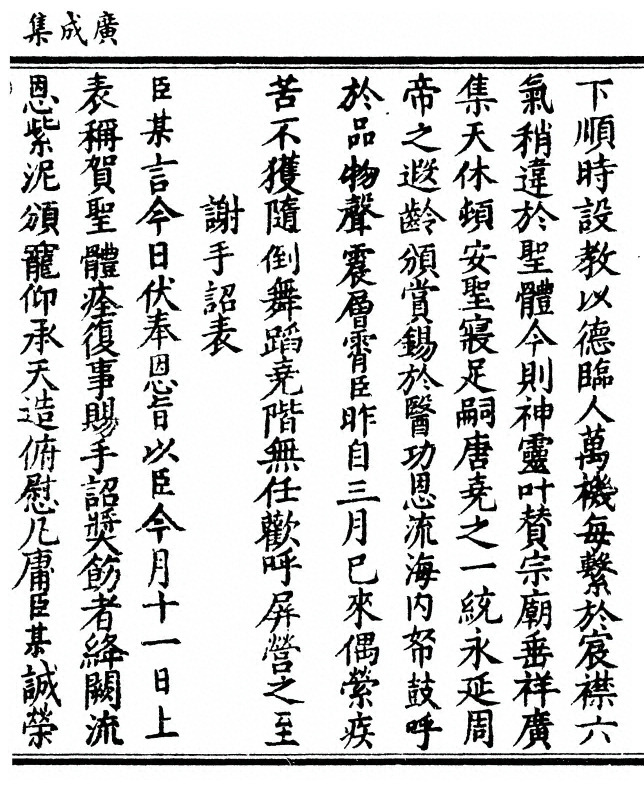 廣成集
下順時設教以德臨人萬機每繫於宸襟六
氣稍違於聖體今則神靈叶賛宗廟垂祥廣
集天休頓安聖寢足嗣唐堯之一統永延周
帝之遐齡頒賞錫於醫功恩流海内帑鼓呼
於品物聲震層霄臣昨自三月已來偶縈疾
苦不獲隨倒舞蹈堯階無任歡呼屏營之至
謝手詔表
臣某言今日伏奉恩旨以臣今月十一日上
表稱賀聖體痊復事賜手詔奬飭者絳闕流
恩紫泥頒寵仰承天造俯慰凡庸臣某誠榮